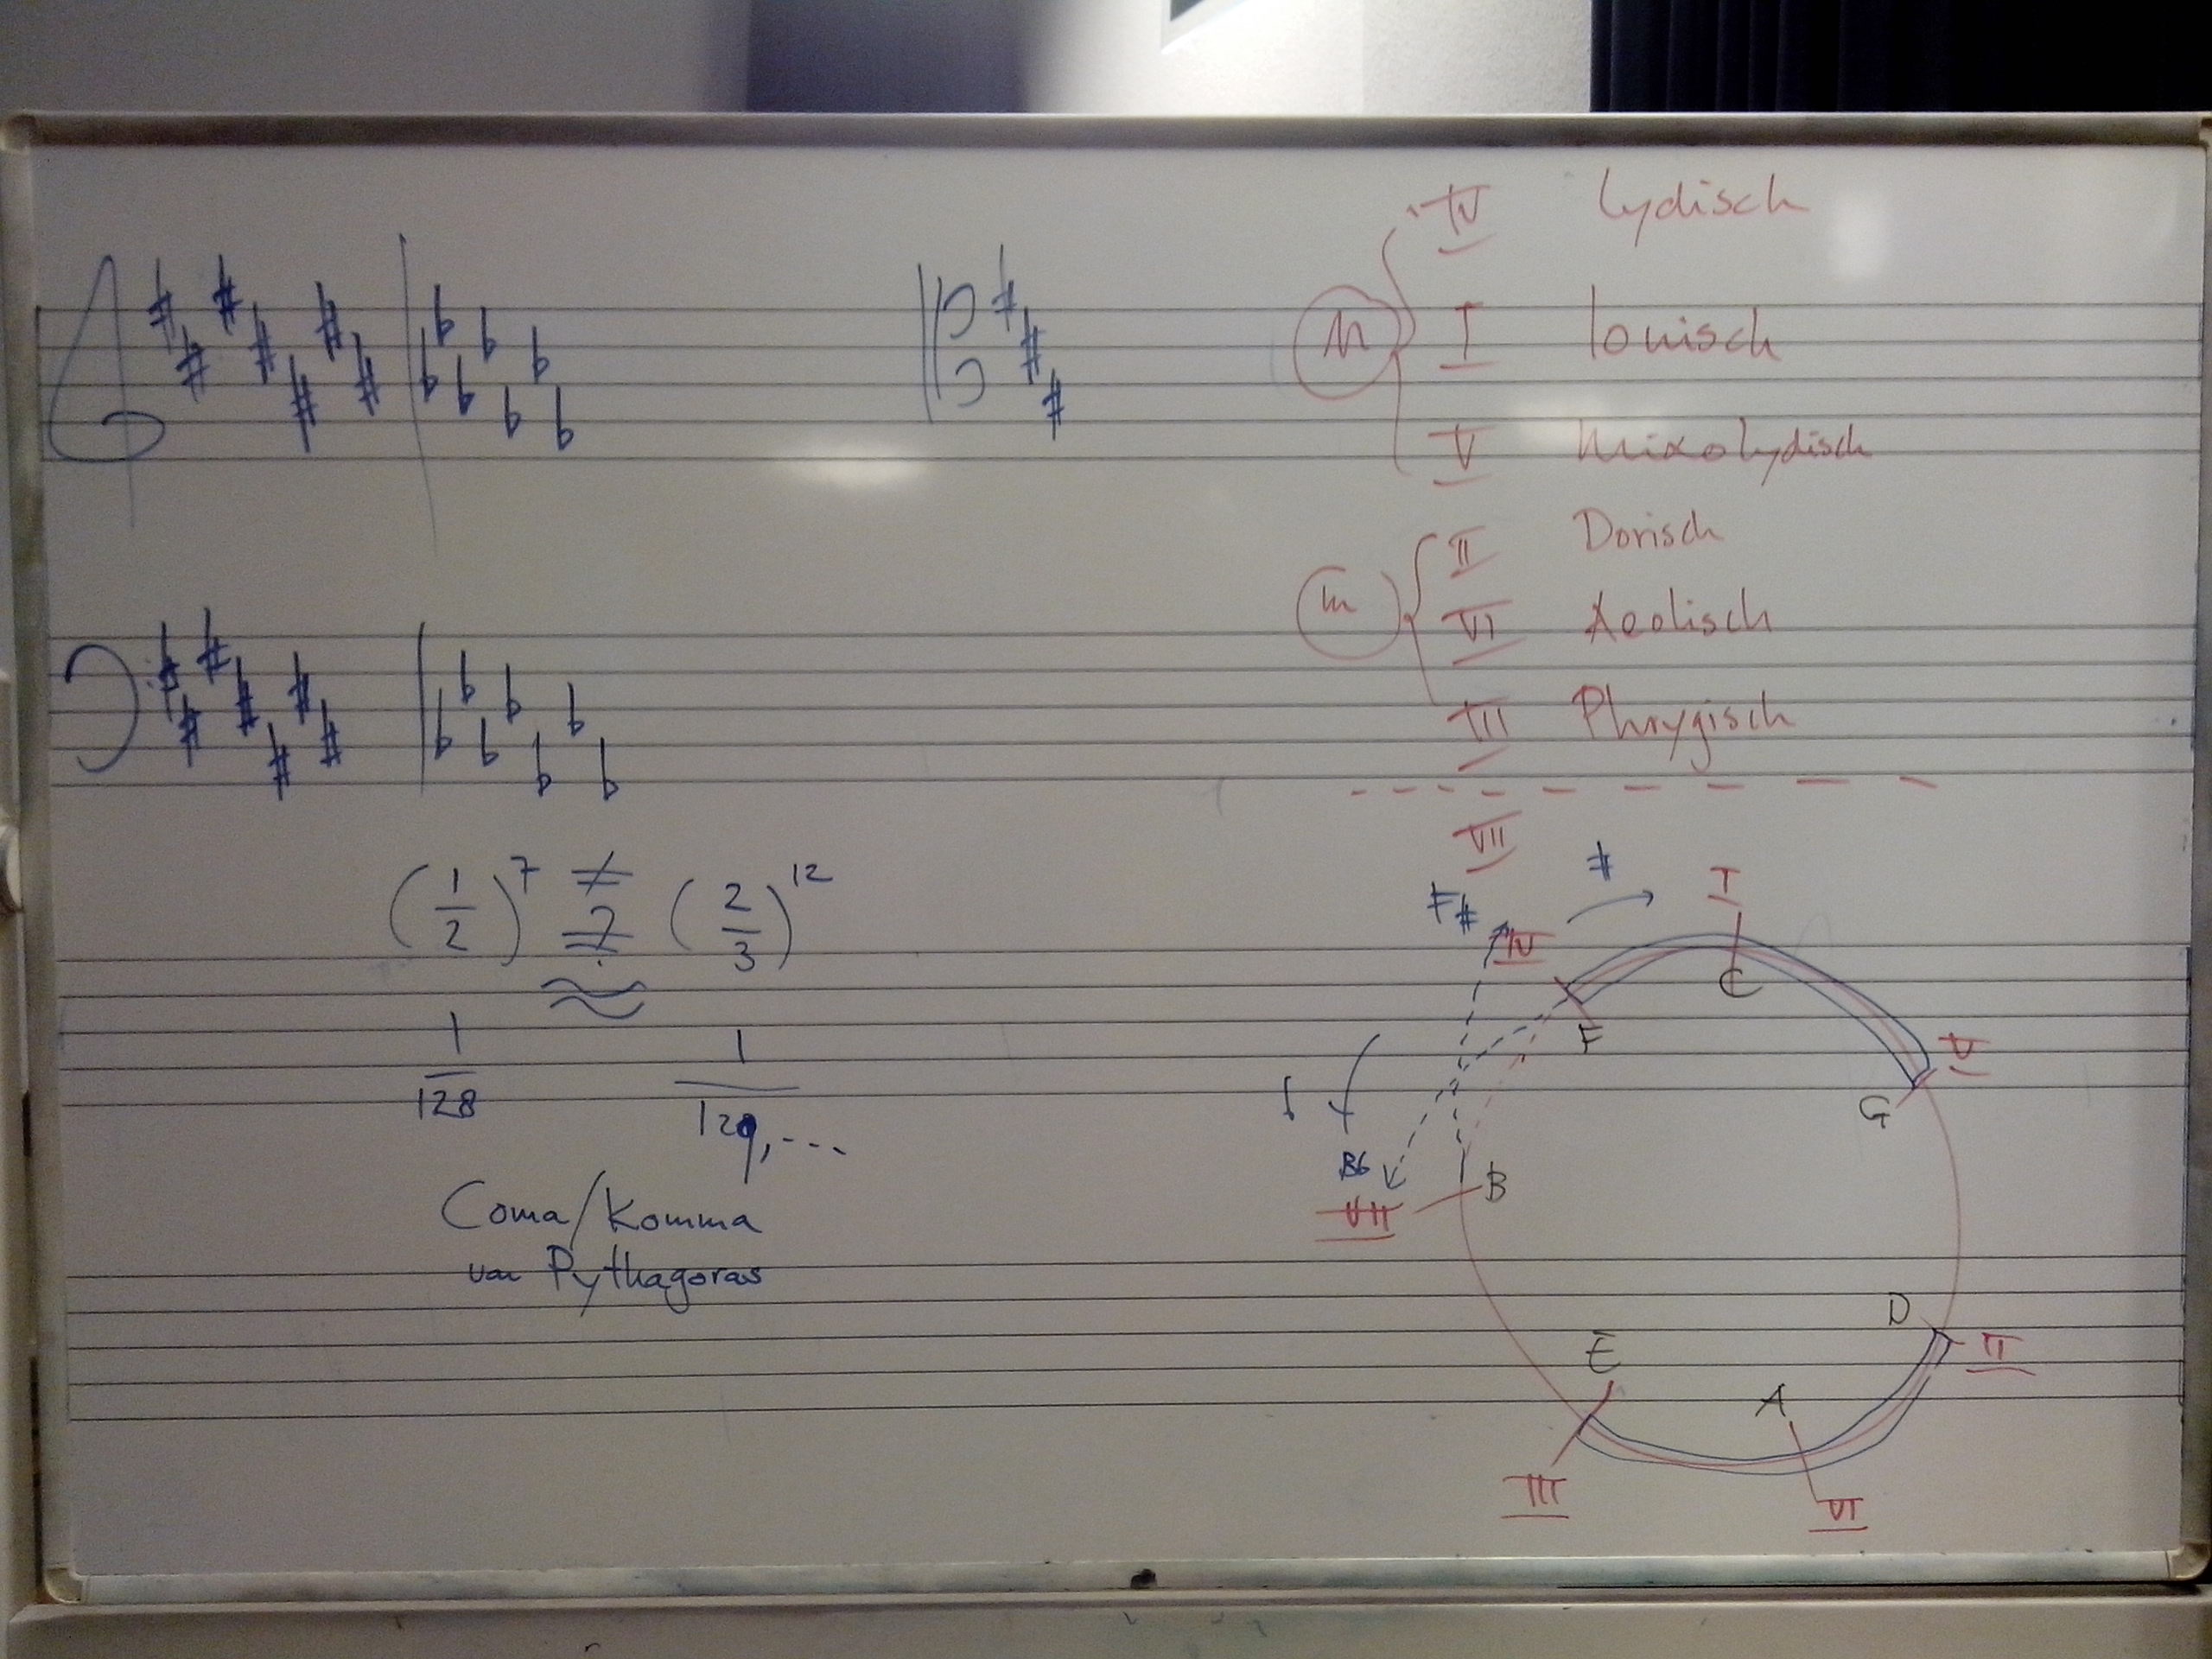 IV Lydisch
M I Ionisch
V Mixolydisch
II Dorisch
m VI Aeolisch
III Phrygisch
VII
(1/2)^7 ≠ (2/3)^12
?
=
≈
1/128 1/129,...
Coma/Komma
von Pythagoras
F# IV # I
C
F
V
G
b
Bb
VII B
D
II
E
A
III
VI